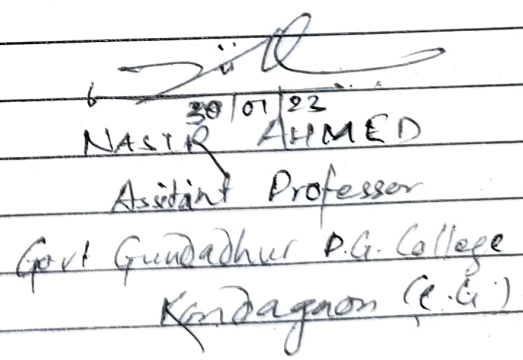 30/01/23
NASIR AHMED
Assitant Professor
Govt Gundadhur P.G. College
Kondagaon (C.G.)